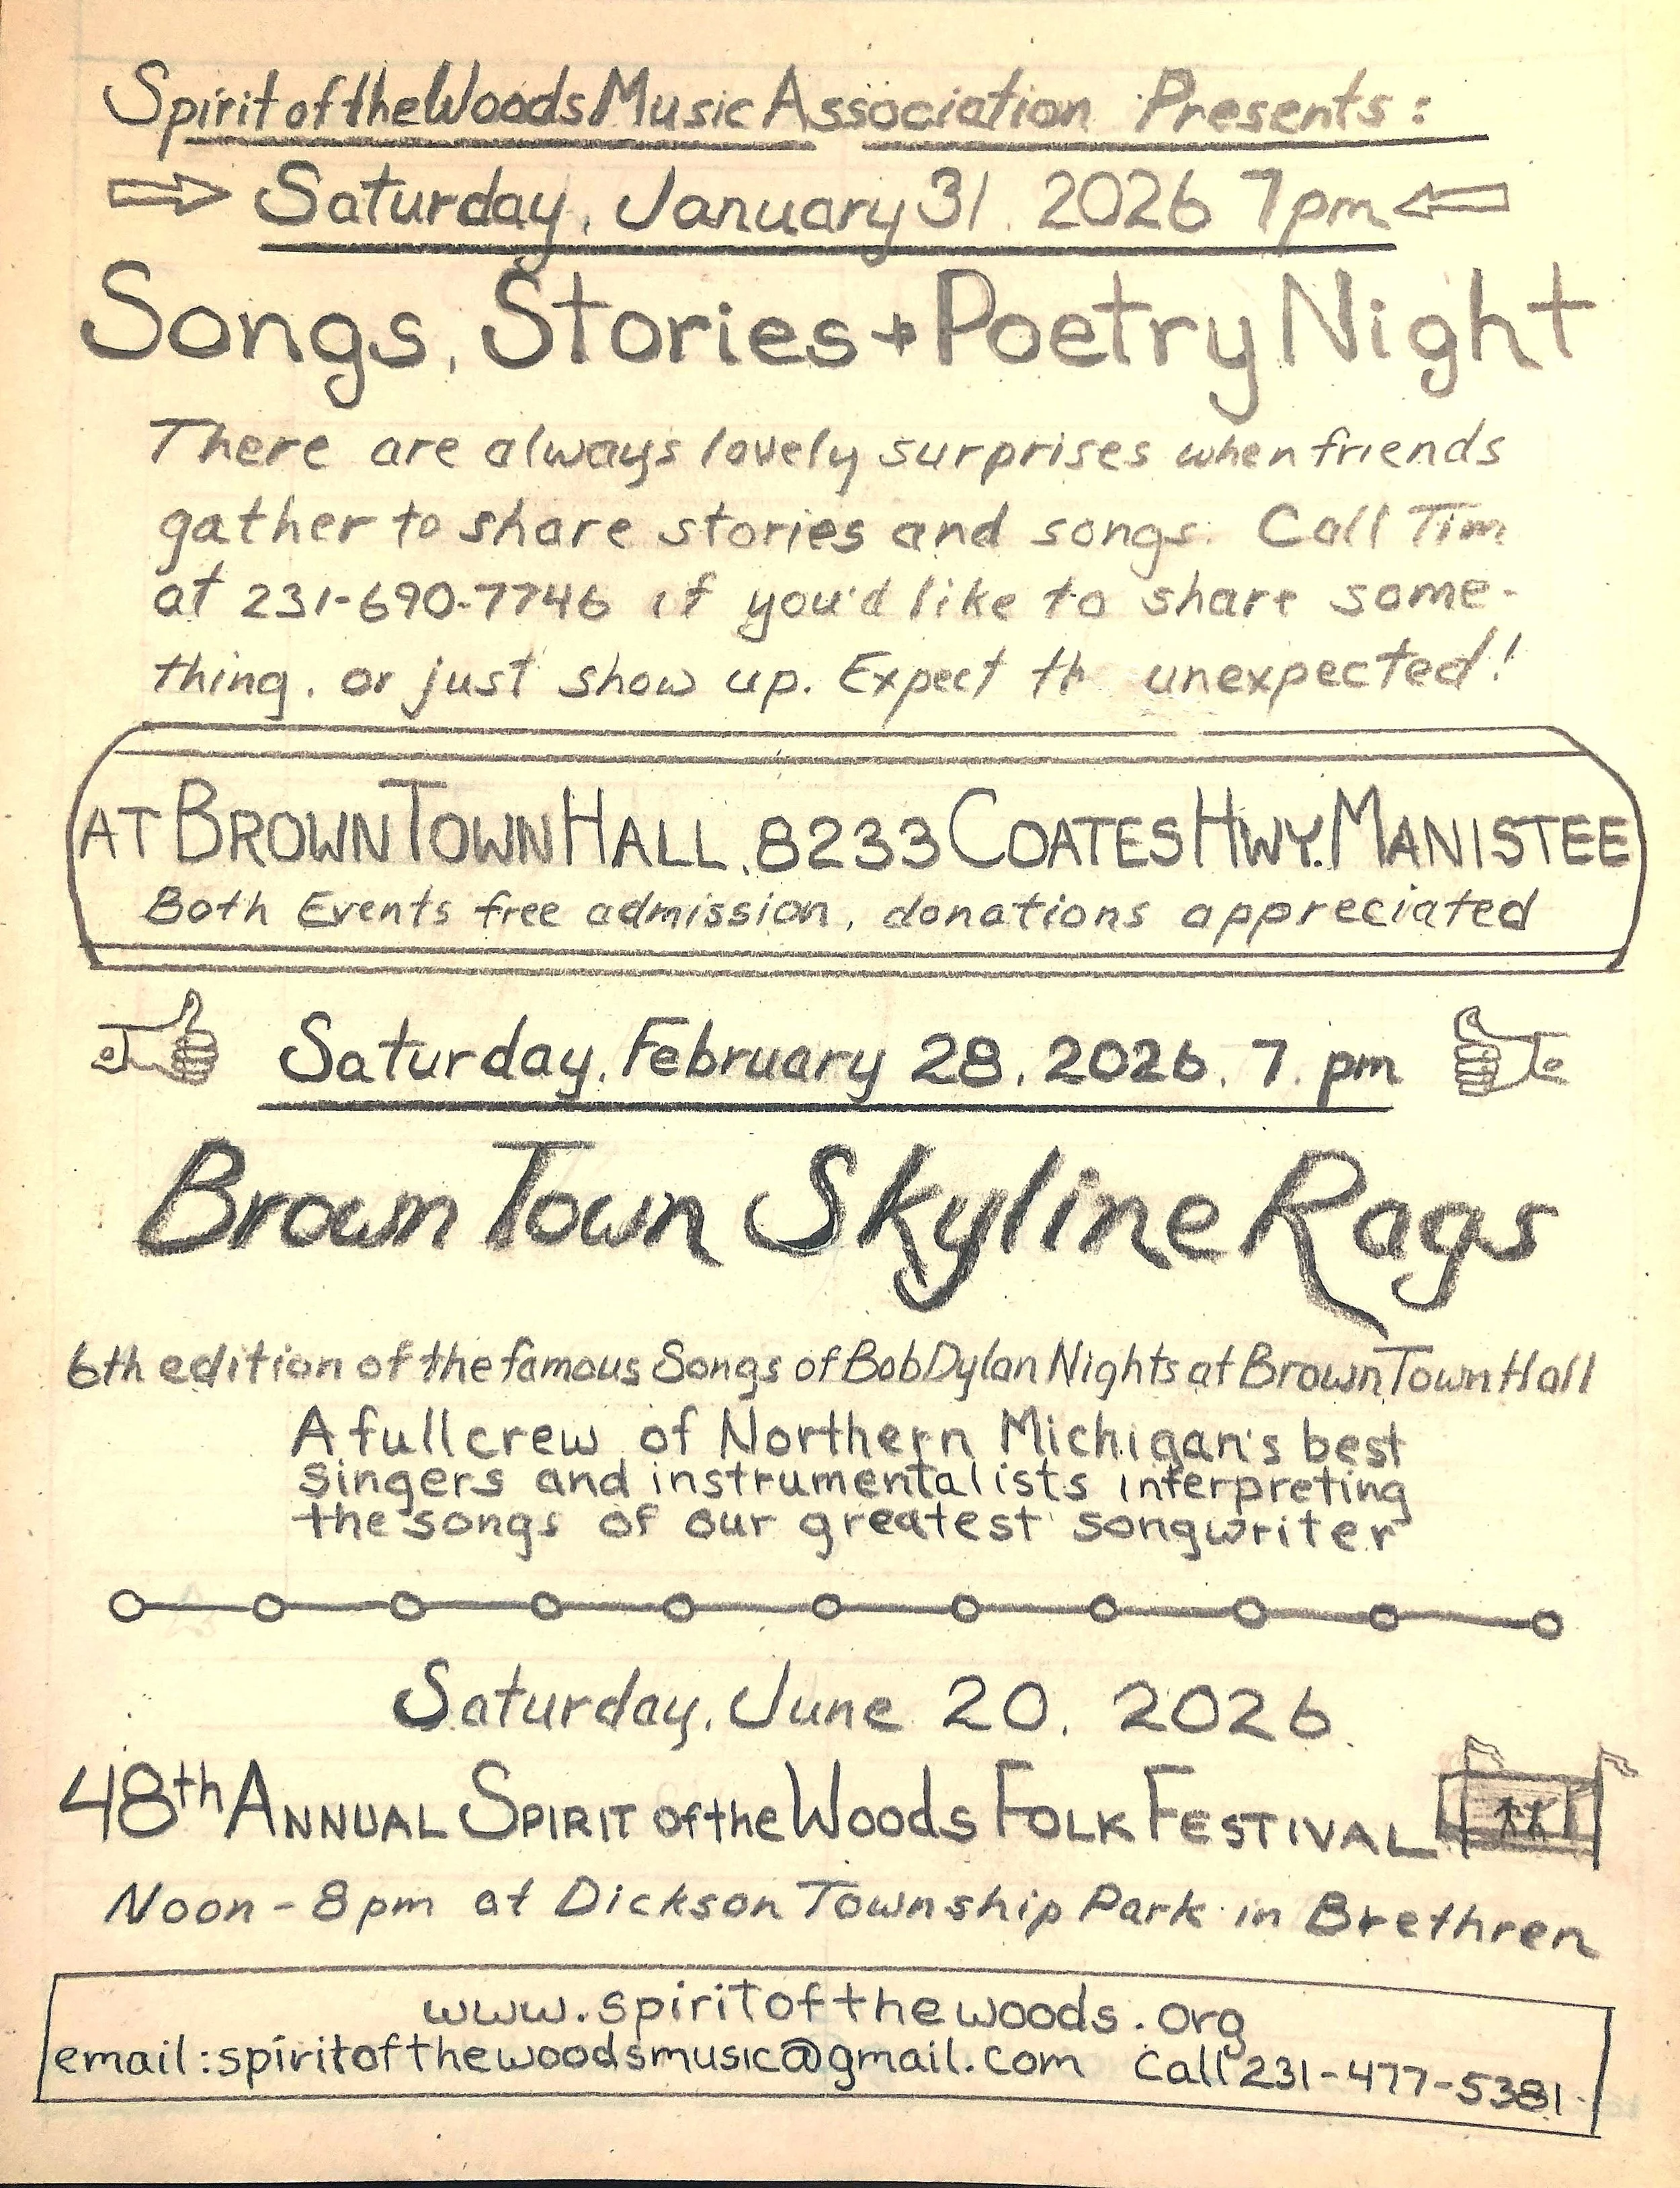 Spirit of the Woods Music Association Presents:
Saturday, January 31, 2026 7pm
Songs, Stories + Poetry Night
There are always lovely surprises when friends
gather to share stories and songs. Call Tim
at 231-690-7746 if you'd like to share some-
thing, or just show up. Expect th unexpected!
AT BROWN TOWN HALL, 8233 COATES HWY. MANISTEE
Both Events free admission, donations appreciated
Saturday, February 28, 2026, 7. pm
Brown Town Skyline Rags
6th edition of the famous Songs of Bob Dylan Nights at Brown Town Hall
A full crew of Northern Michigan's best
singers and instrumentalists interpreting
the songs of our greatest songwriter
Saturday, June 20, 2026
48th ANNUAL SPIRIT of the Woods FOLK FESTIVAL
Noon - 8pm at Dickson Township Park in Brethren
www.spiritofthewoods.org
email: spiritofthewoodsmusic@gmail.com Call 231-477-5381